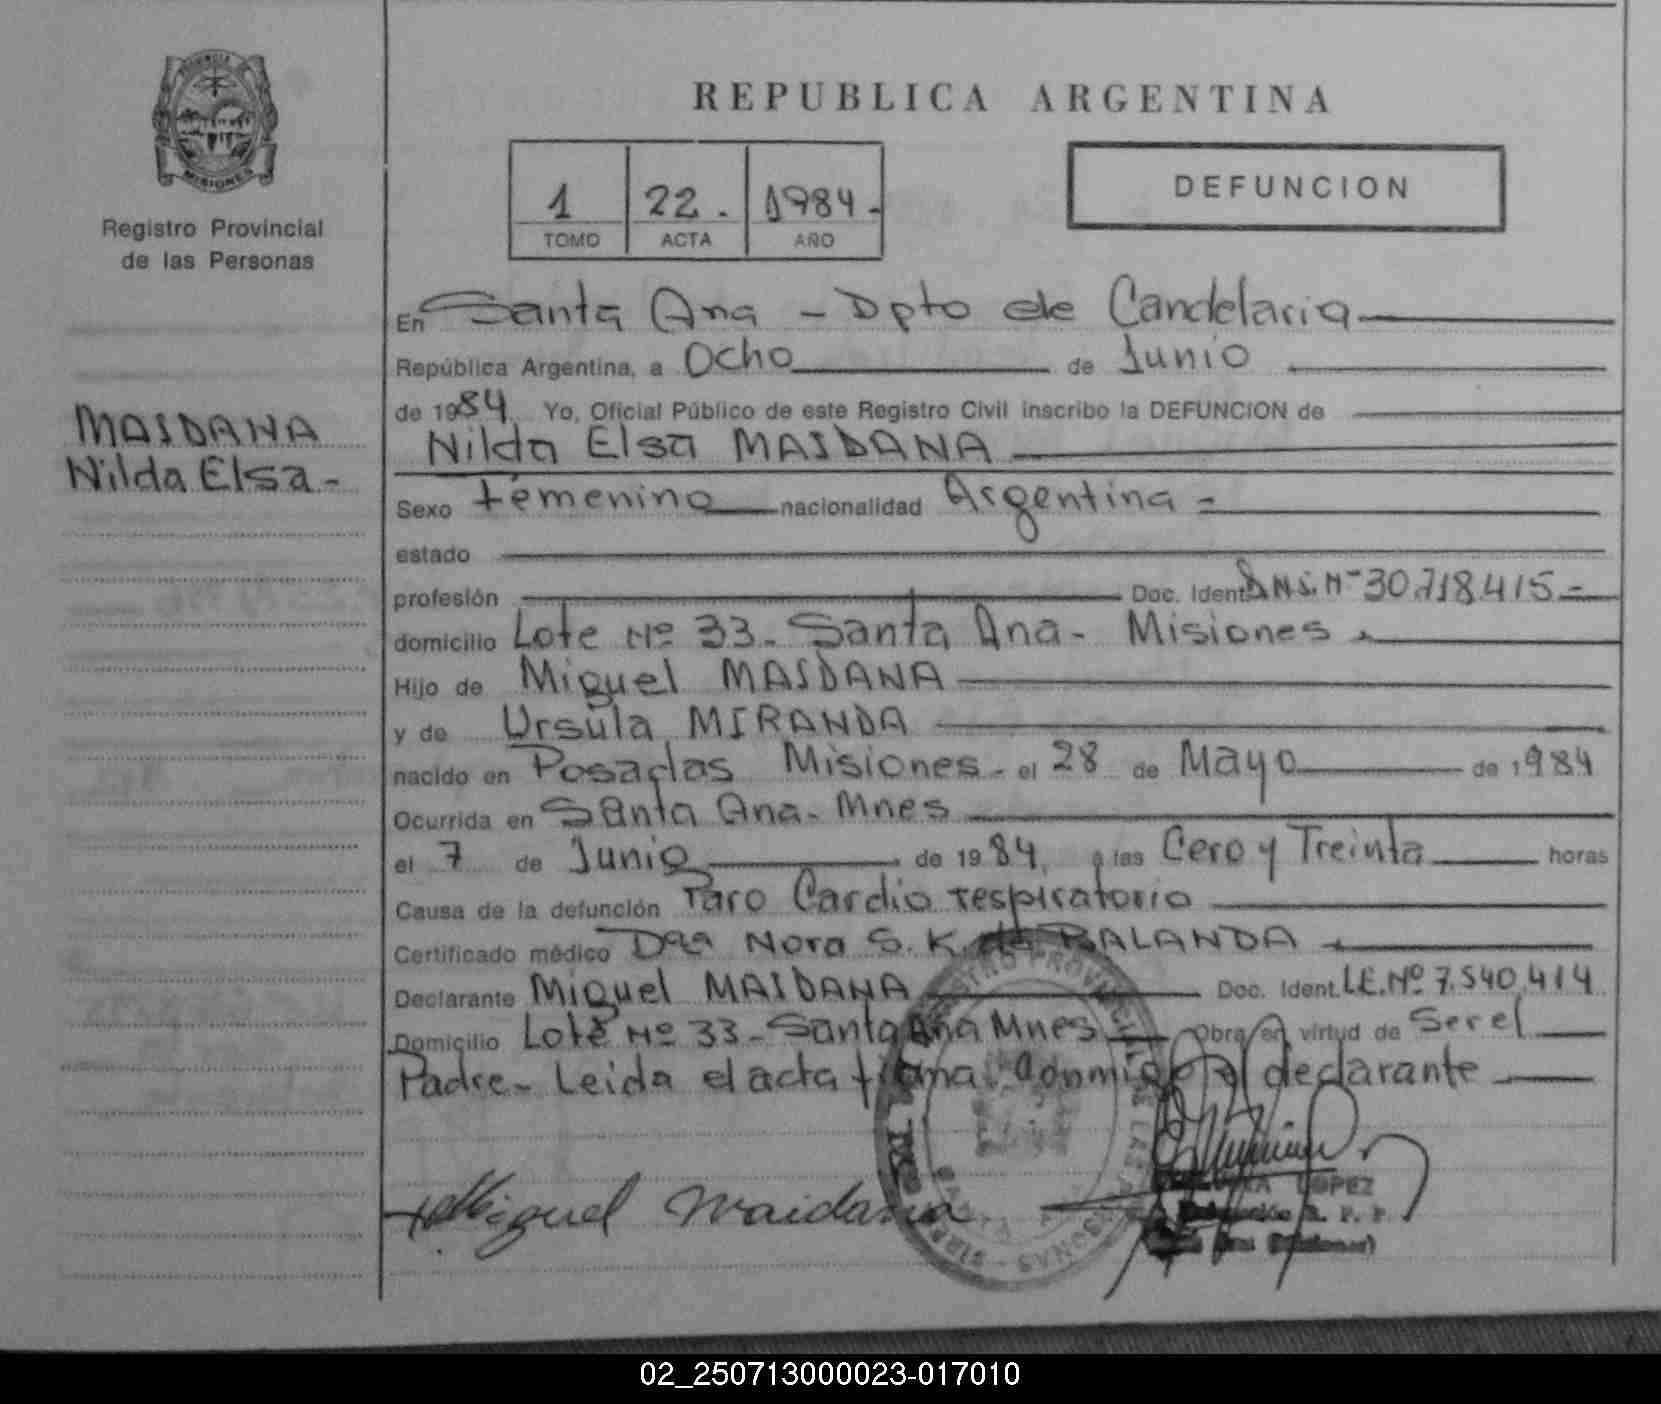 PROVINCIA DE
MISIONES
Registro Provincial
de las Personas
MAIDANA
Nilda Elsa -
REPUBLICA ARGENTINA
1 22. 1984.-
TOMO ACTA AÑO
DEFUNCION
En Santa Ana - Dpto de Candelaria
República Argentina, a Ocho de Junio
de 1984. Yo, Oficial Público de este Registro Civil inscribo la DEFUNCION de
Nilda Elsa MAIDANA
Sexo femenino nacionalidad Argentina -
estado
profesión Doc. Ident. D.N.I. Nº 30.718.415 -
domicilio Lote Nº 33 - Santa Ana - Misiones.
Hijo de Miguel MAIDANA
y de Ursula MIRANDA
nacido en Posadas Misiones - el 28 de Mayo de 1984
Ocurrida en Santa Ana - Mnes
el 7 de Junio de 1984, a las Cero y Treinta horas
Causa de la defunción Paro Cardio respiratorio
Certificado médico Dra Nora S. K. de BALANDA
Declarante Miguel MAIDANA Doc. Ident. L.E. Nº 7.540.414
Domicilio Lote Nº 33 - Santa Ana Mnes Obra en virtud de Ser el
Padre - Leida el acta firma conmigo el declarante
Miguel Maidana
LOPEZ
02_250713000023-017010